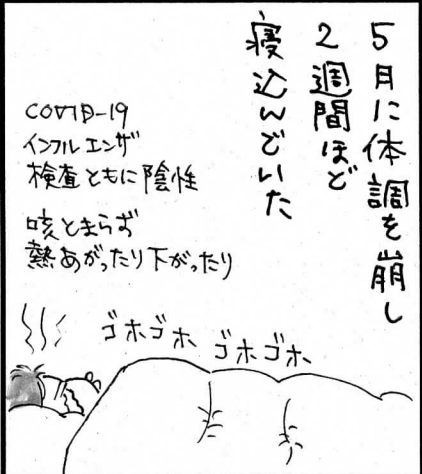 5月に体調を崩し
2週間ほど
寝込んでいた
COVID-19
インフルエンザ
検査ともに陰性
咳とまらず
熱あがったり下がったり
ゴホゴホ ゴホゴホ